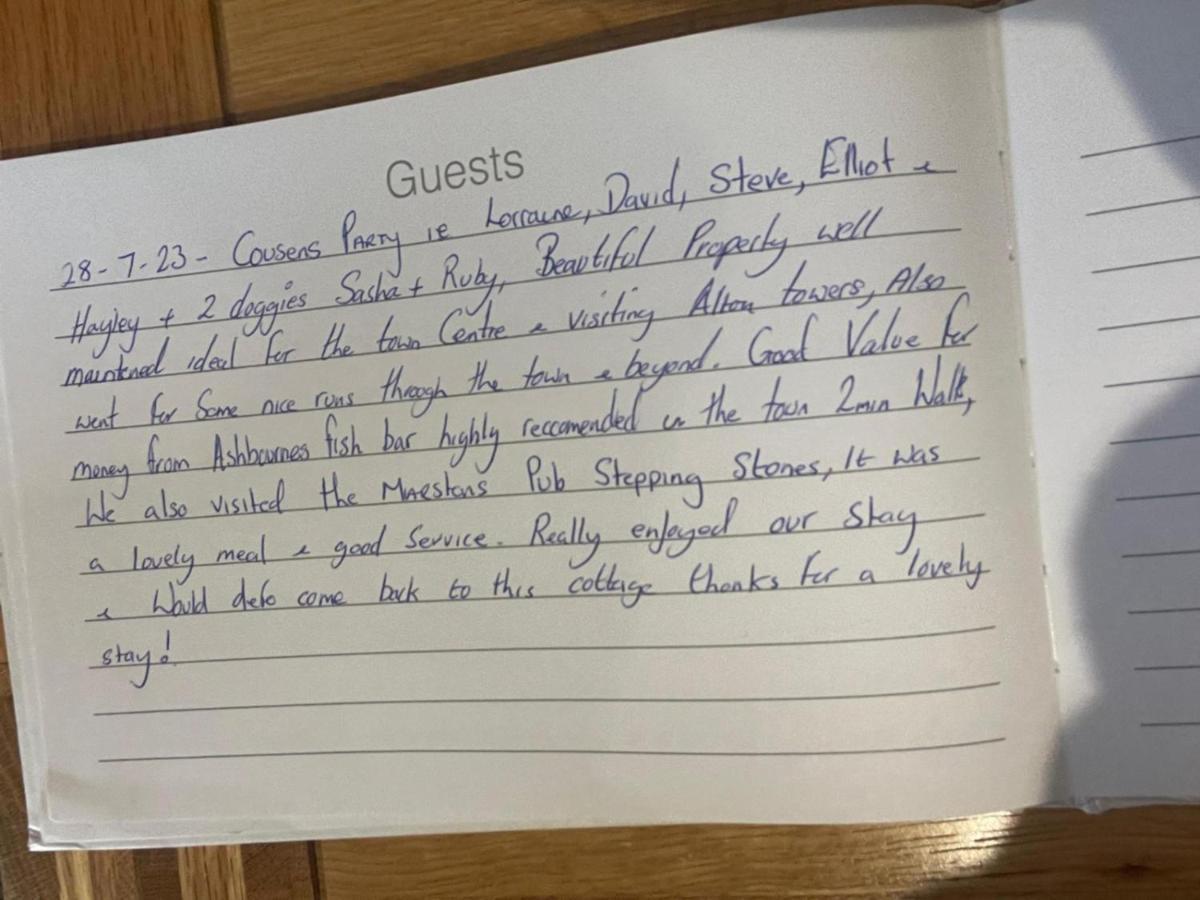 Guests
28-7-23- Cousens Party ie Lorraine, David, Steve, Elliot &
Hayley + 2 doggies Sasha + Ruby, Beautiful Property well
maintened ideal for the town Centre & visiting Alton towers, Also
went for Some nice runs through the town & beyond. Good Value for
money from Ashbournes fish bar highly reccomended in the town 2min Walk,
We also visited the Marstons Pub Stepping Stones, It was
a lovely meal & good Service. Really enjoyed our Stay
& Would defo come back to this cottage thanks for a lovely
stay!